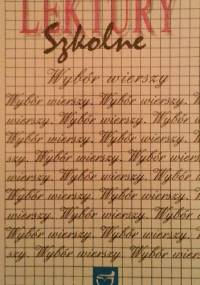 LEKTURY
Szkolne
Wybór wierszy
Wybór wierszy. Wybór wierszy. W
wierszy. Wybór wierszy. Wybór
Wybór wierszy. Wybór wierszy.
szy. Wybór wierszy. Wybór wier
wierszy. Wybór wierszy. Wybór
Wybór wierszy. Wybór wierszy. W
wierszy. Wybór wierszy. Wybór w
Wybór wierszy. Wybór wierszy.
szy. Wybór wierszy. Wybór wier